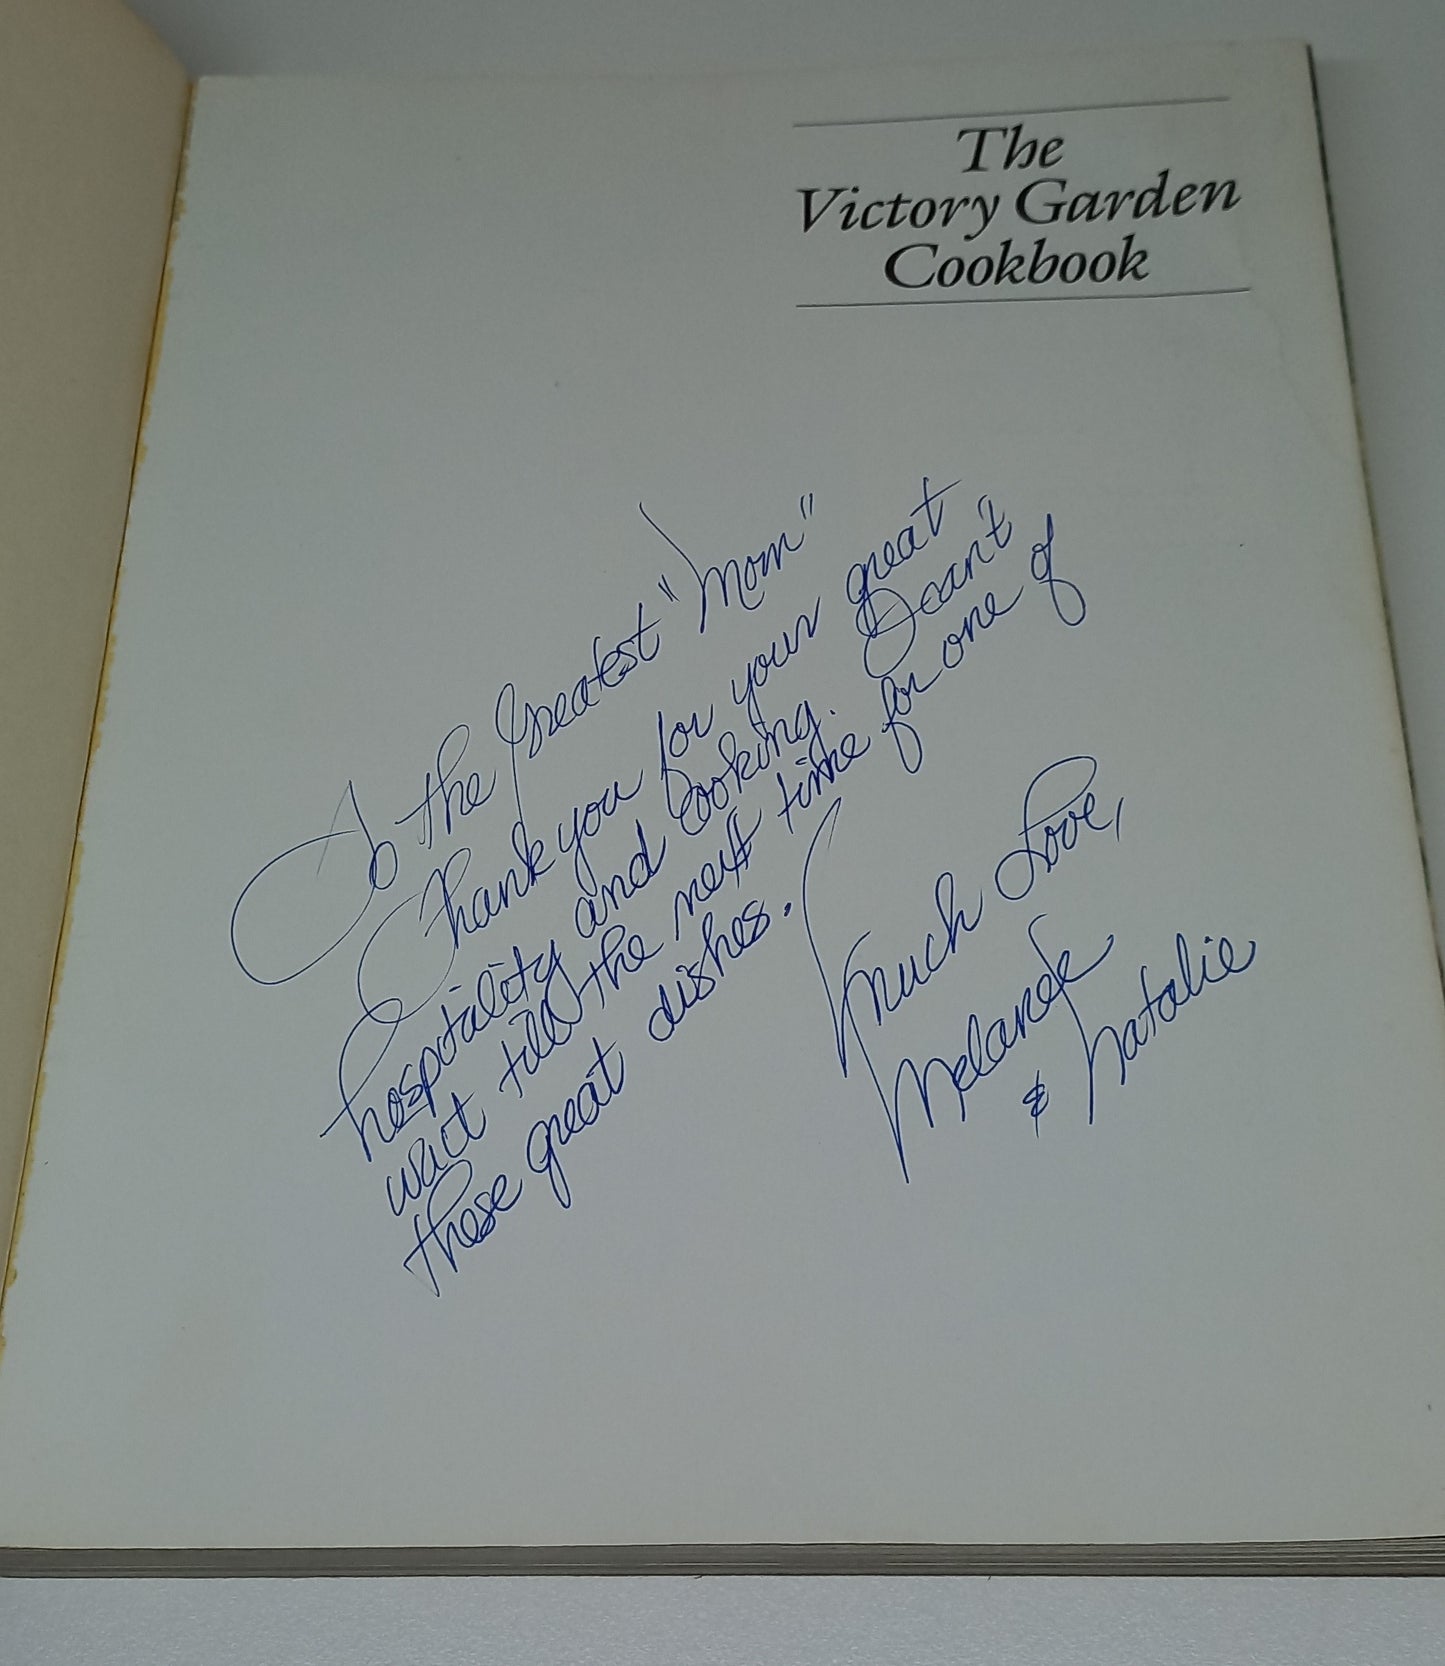 The
Victory Garden
Cookbook
To the Greatest "Mom"
Thank you for your great
hospitality and cooking. I can't
wait till the next time for one of
these great dishes.
Much Love,
Melanie
& Natalie